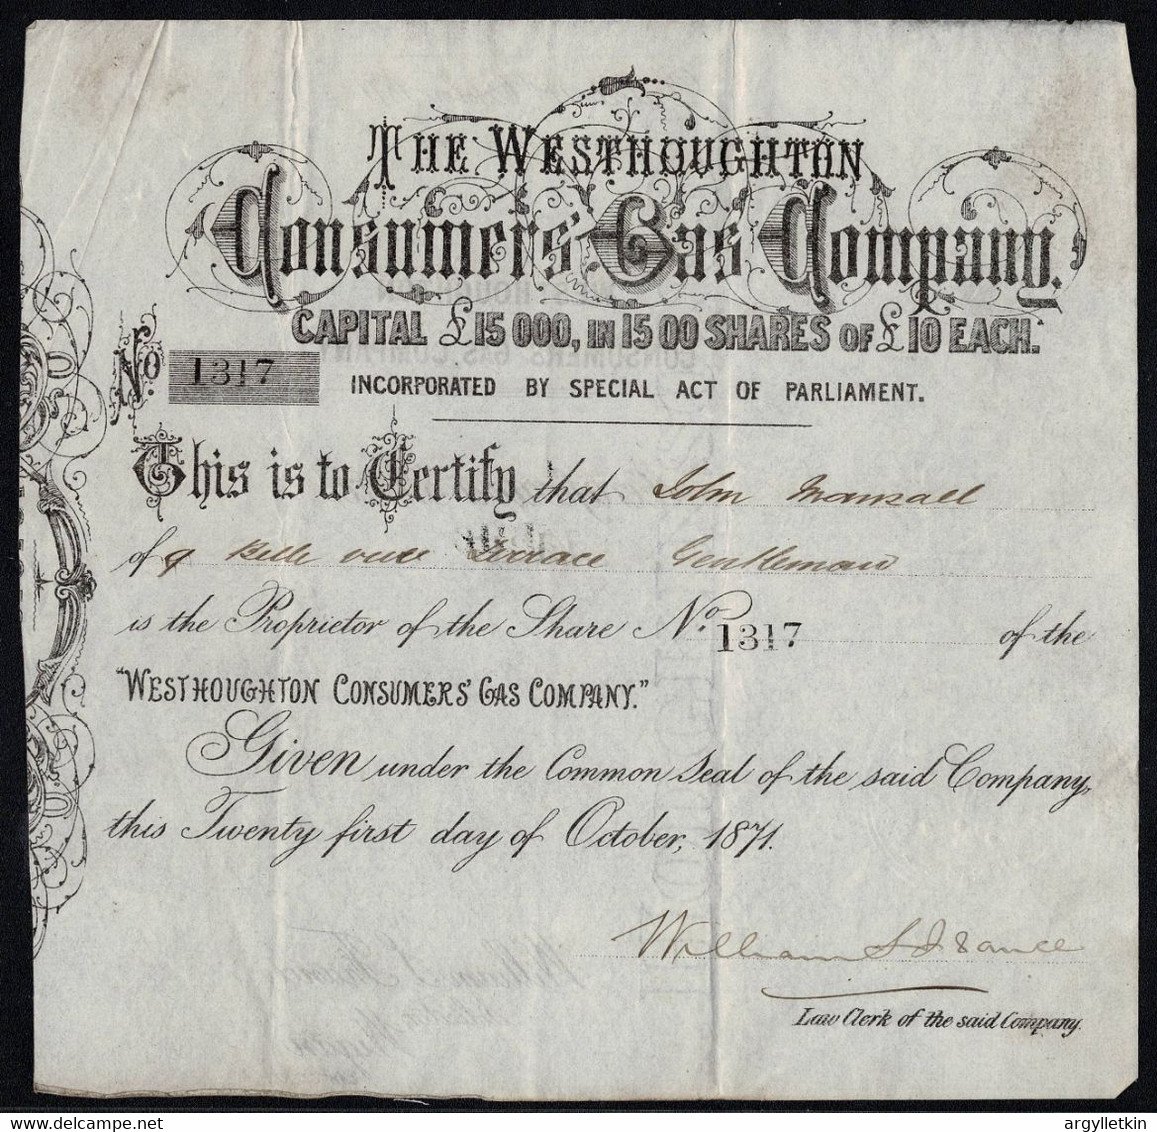 THE WESTHOUGHTON
Consumers' Gas Company.
CAPITAL £15 000, IN 15 00 SHARES OF £10 EACH.
No. 1317
INCORPORATED BY SPECIAL ACT OF PARLIAMENT.
This is to Certify that John
of 9 Belle vue Terrace Gentleman
is the Proprietor of the Share No. 1317 of the
"WESTHOUGHTON CONSUMERS' GAS COMPANY."
Given under the Common Seal of the said Company,
this Twenty first day of October, 1871.
William
Law Clerk of the said Company.
argylletkin